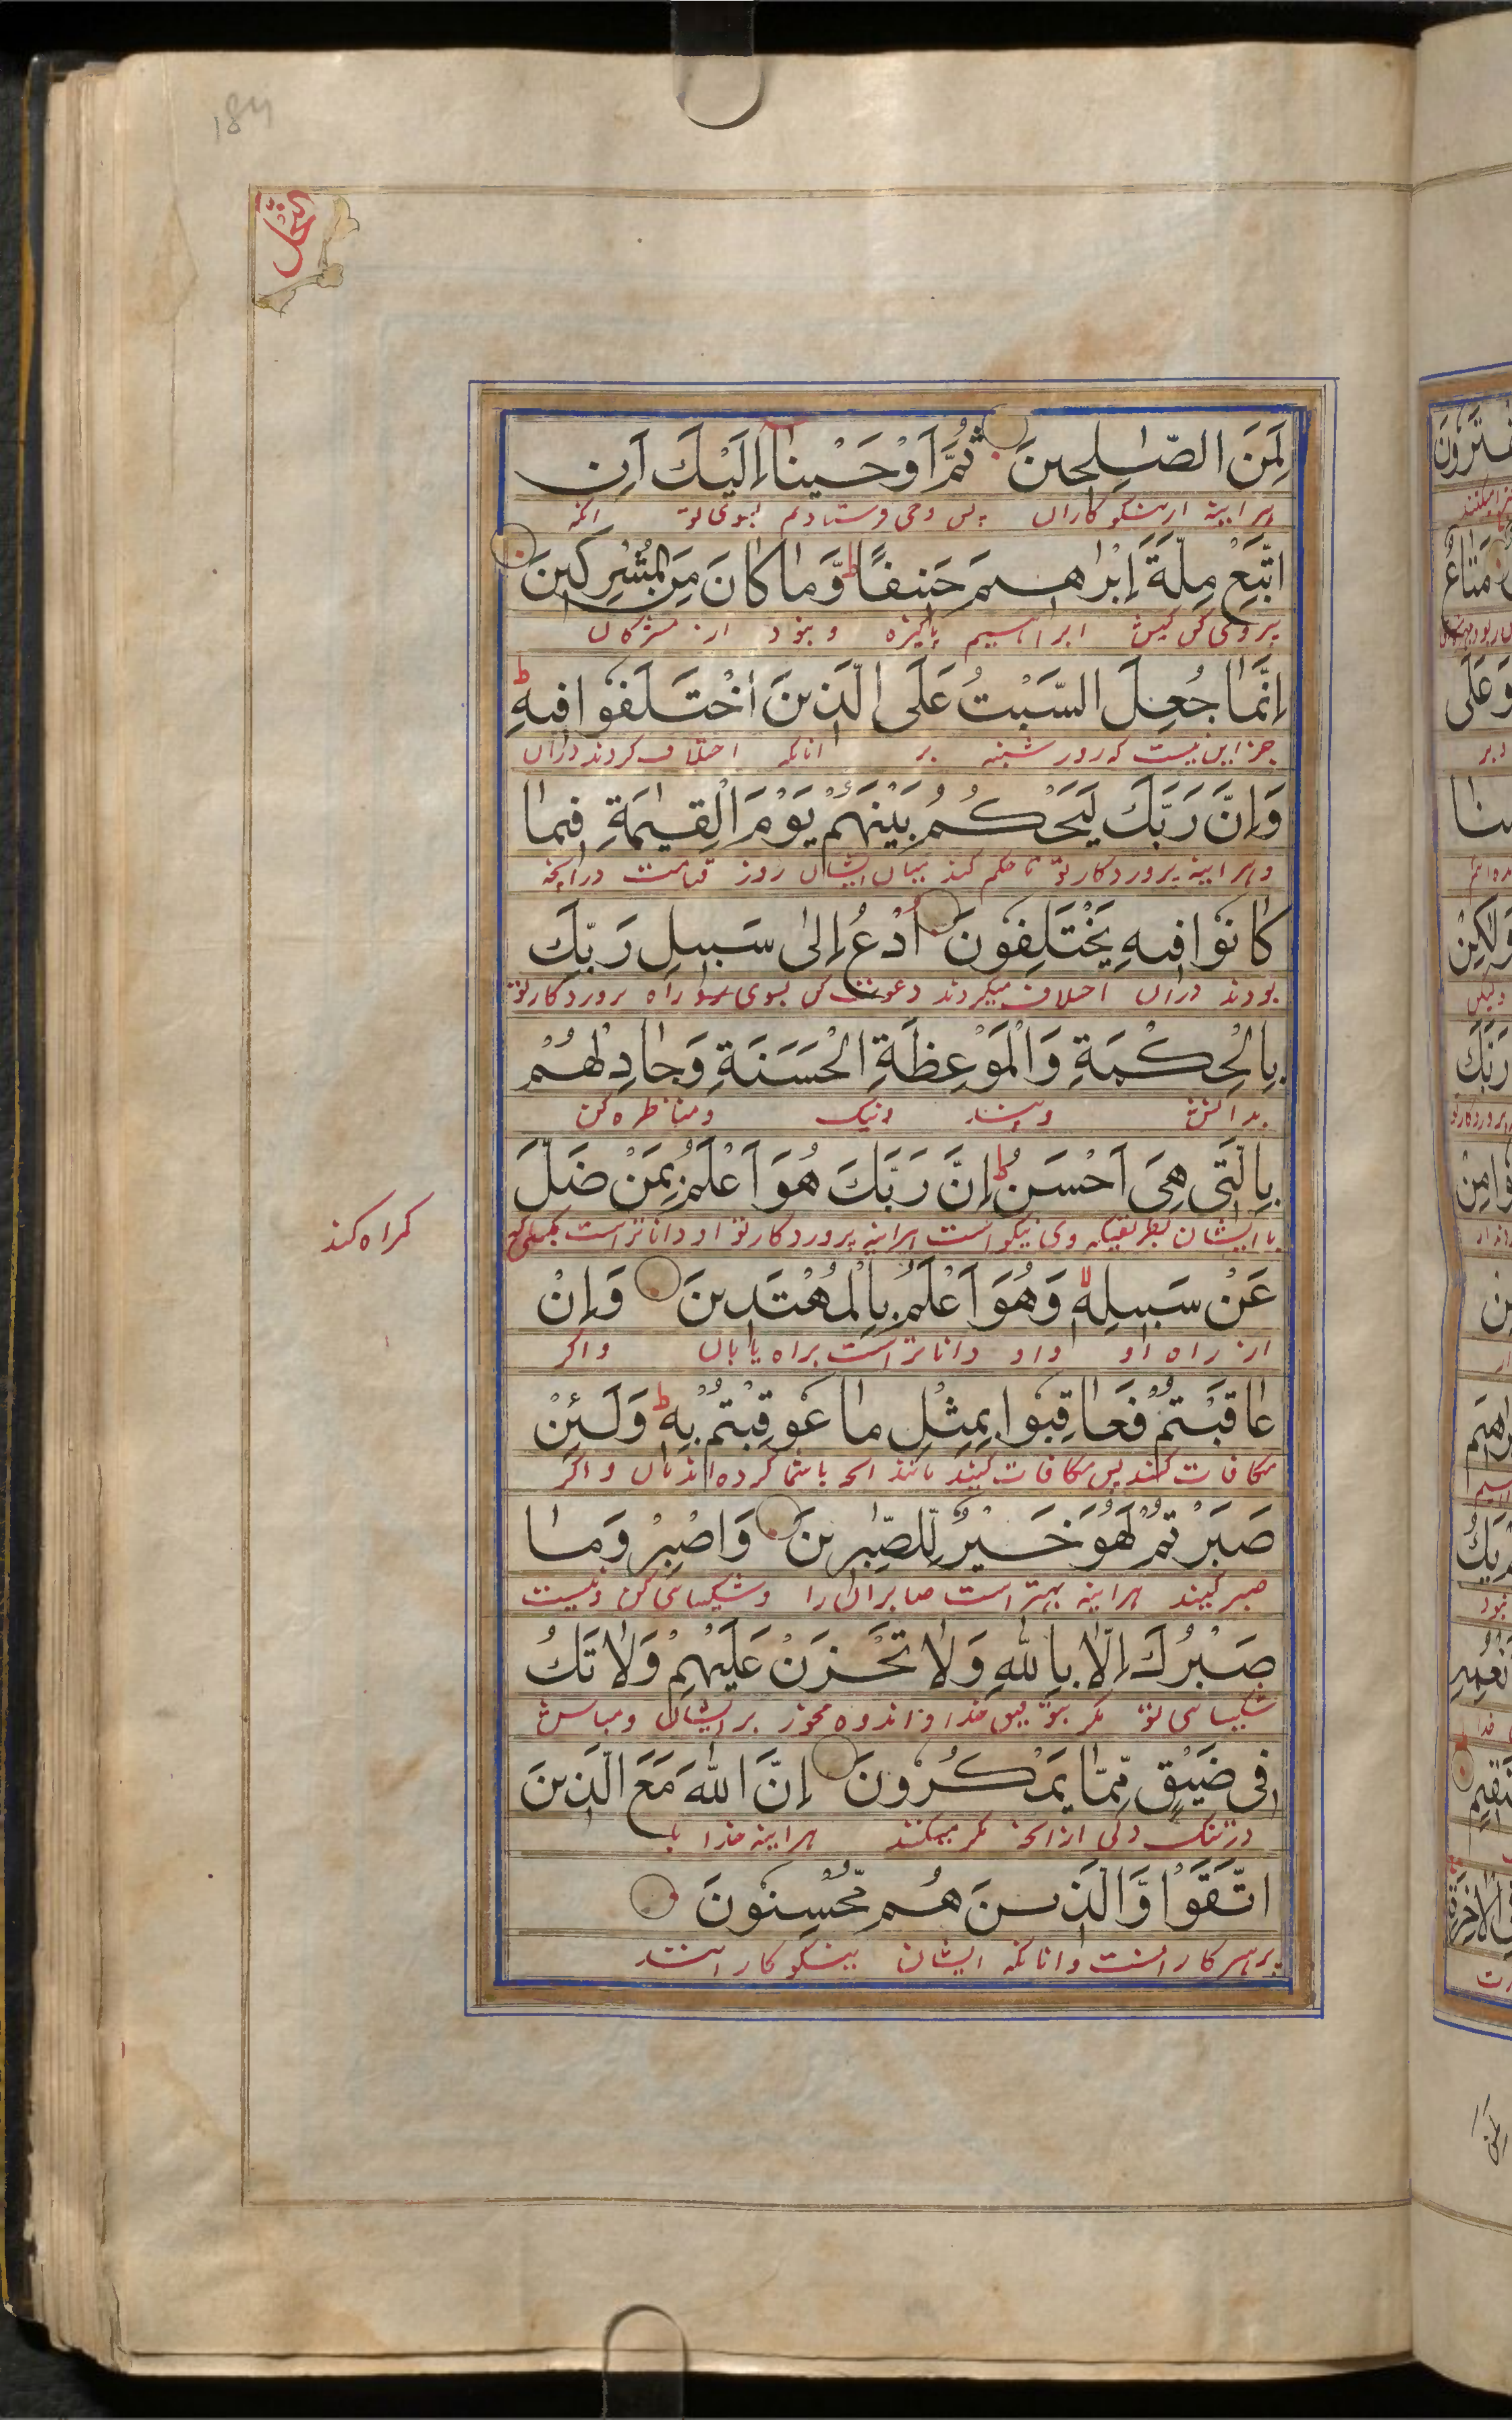 184
النحل
لَمِنَ الصّٰلِحينَ ثُمَّ اَوْحَيْنا اِلَيْكَ اَنِ
هرآینه از نیکوکاران پس وحی فرستادیم بسوی تو آنکه
اتَّبِعْ مِلَّةَ اِبْرٰاهيمَ حَنيفًا ط وَّمٰا كٰانَ مِنَ الْمُشْرِكينَ
پیروی کن کیش ابراهیم پاکیزه و نبود از مشرکان
اِنَّمٰا جُعِلَ السَّبْتُ عَلَى الَّذينَ اخْتَلَفُوا فيهِ ط
جز این نیست که روز شنبه بر آنانکه اختلاف کردند در آن
وَاِنَّ رَبَّكَ لَيَحْكُمُ بَيْنَهُمْ يَوْمَ الْقِيٰمَةِ فيمٰا
و هرآینه پروردکار تو تا حکم کند میان ایشان روز قیامت در آنچه
كٰانُوا فيهِ يَخْتَلِفُونَ اُدْعُ اِلىٰ سَبيلِ رَبِّكَ
بودند در آن اختلاف میکردند دعوت کن بسوی راه پروردکار تو
بِالْحِكْمَةِ وَالْمَوْعِظَةِ الْحَسَنَةِ وَجٰادِلْهُمْ
بدانش و پند نیک و مناظره کن
بِالَّتي هِيَ اَحْسَنُ ط اِنَّ رَبَّكَ هُوَ اَعْلَمُ بِمَنْ ضَلَّ
با ایشان بطریقیکه وی نیکو است هرآینه پروردکار تو او داناتر است
کمراه کند
عَنْ سَبيلِهٖ وَهُوَ اَعْلَمُ بِالْمُهْتَدينَ وَاِنْ
از راه او و او داناتر است براه یابان و اکر
عٰاقَبْتُمْ فَعٰاقِبُوا بِمِثْلِ مٰا عُوقِبْتُمْ بِهٖ ط وَلَئِنْ
مکافات کنید پس مکافات کنید مانند آنچه با شما کرده اند بآن و اکر
صَبَرْتُمْ لَهُوَ خَيْرٌ لِّلصّٰبِرينَ وَاصْبِرْ وَمٰا
صبر کنید هرآینه بهتر است صابران را و شکیبائی کن و نیست
صَبْرُكَ اِلّٰا بِاللّٰهِ وَلٰا تَحْزَنْ عَلَيْهِمْ وَلٰا تَكُ
شکیبائی تو مکر بتوفیق خدا و اندوه مخور بر ایشان و مباش
في ضَيْقٍ مِّمّٰا يَمْكُرُونَ اِنَّ اللّٰهَ مَعَ الَّذينَ
در تنک دلی از آنچه مکر میکنند هرآینه خدا با
اتَّقَوْا وَّالَّذينَ هُمْ مُّحْسِنُونَ
پرهیزکارانست و آنانکه ایشان نیکوکارانند